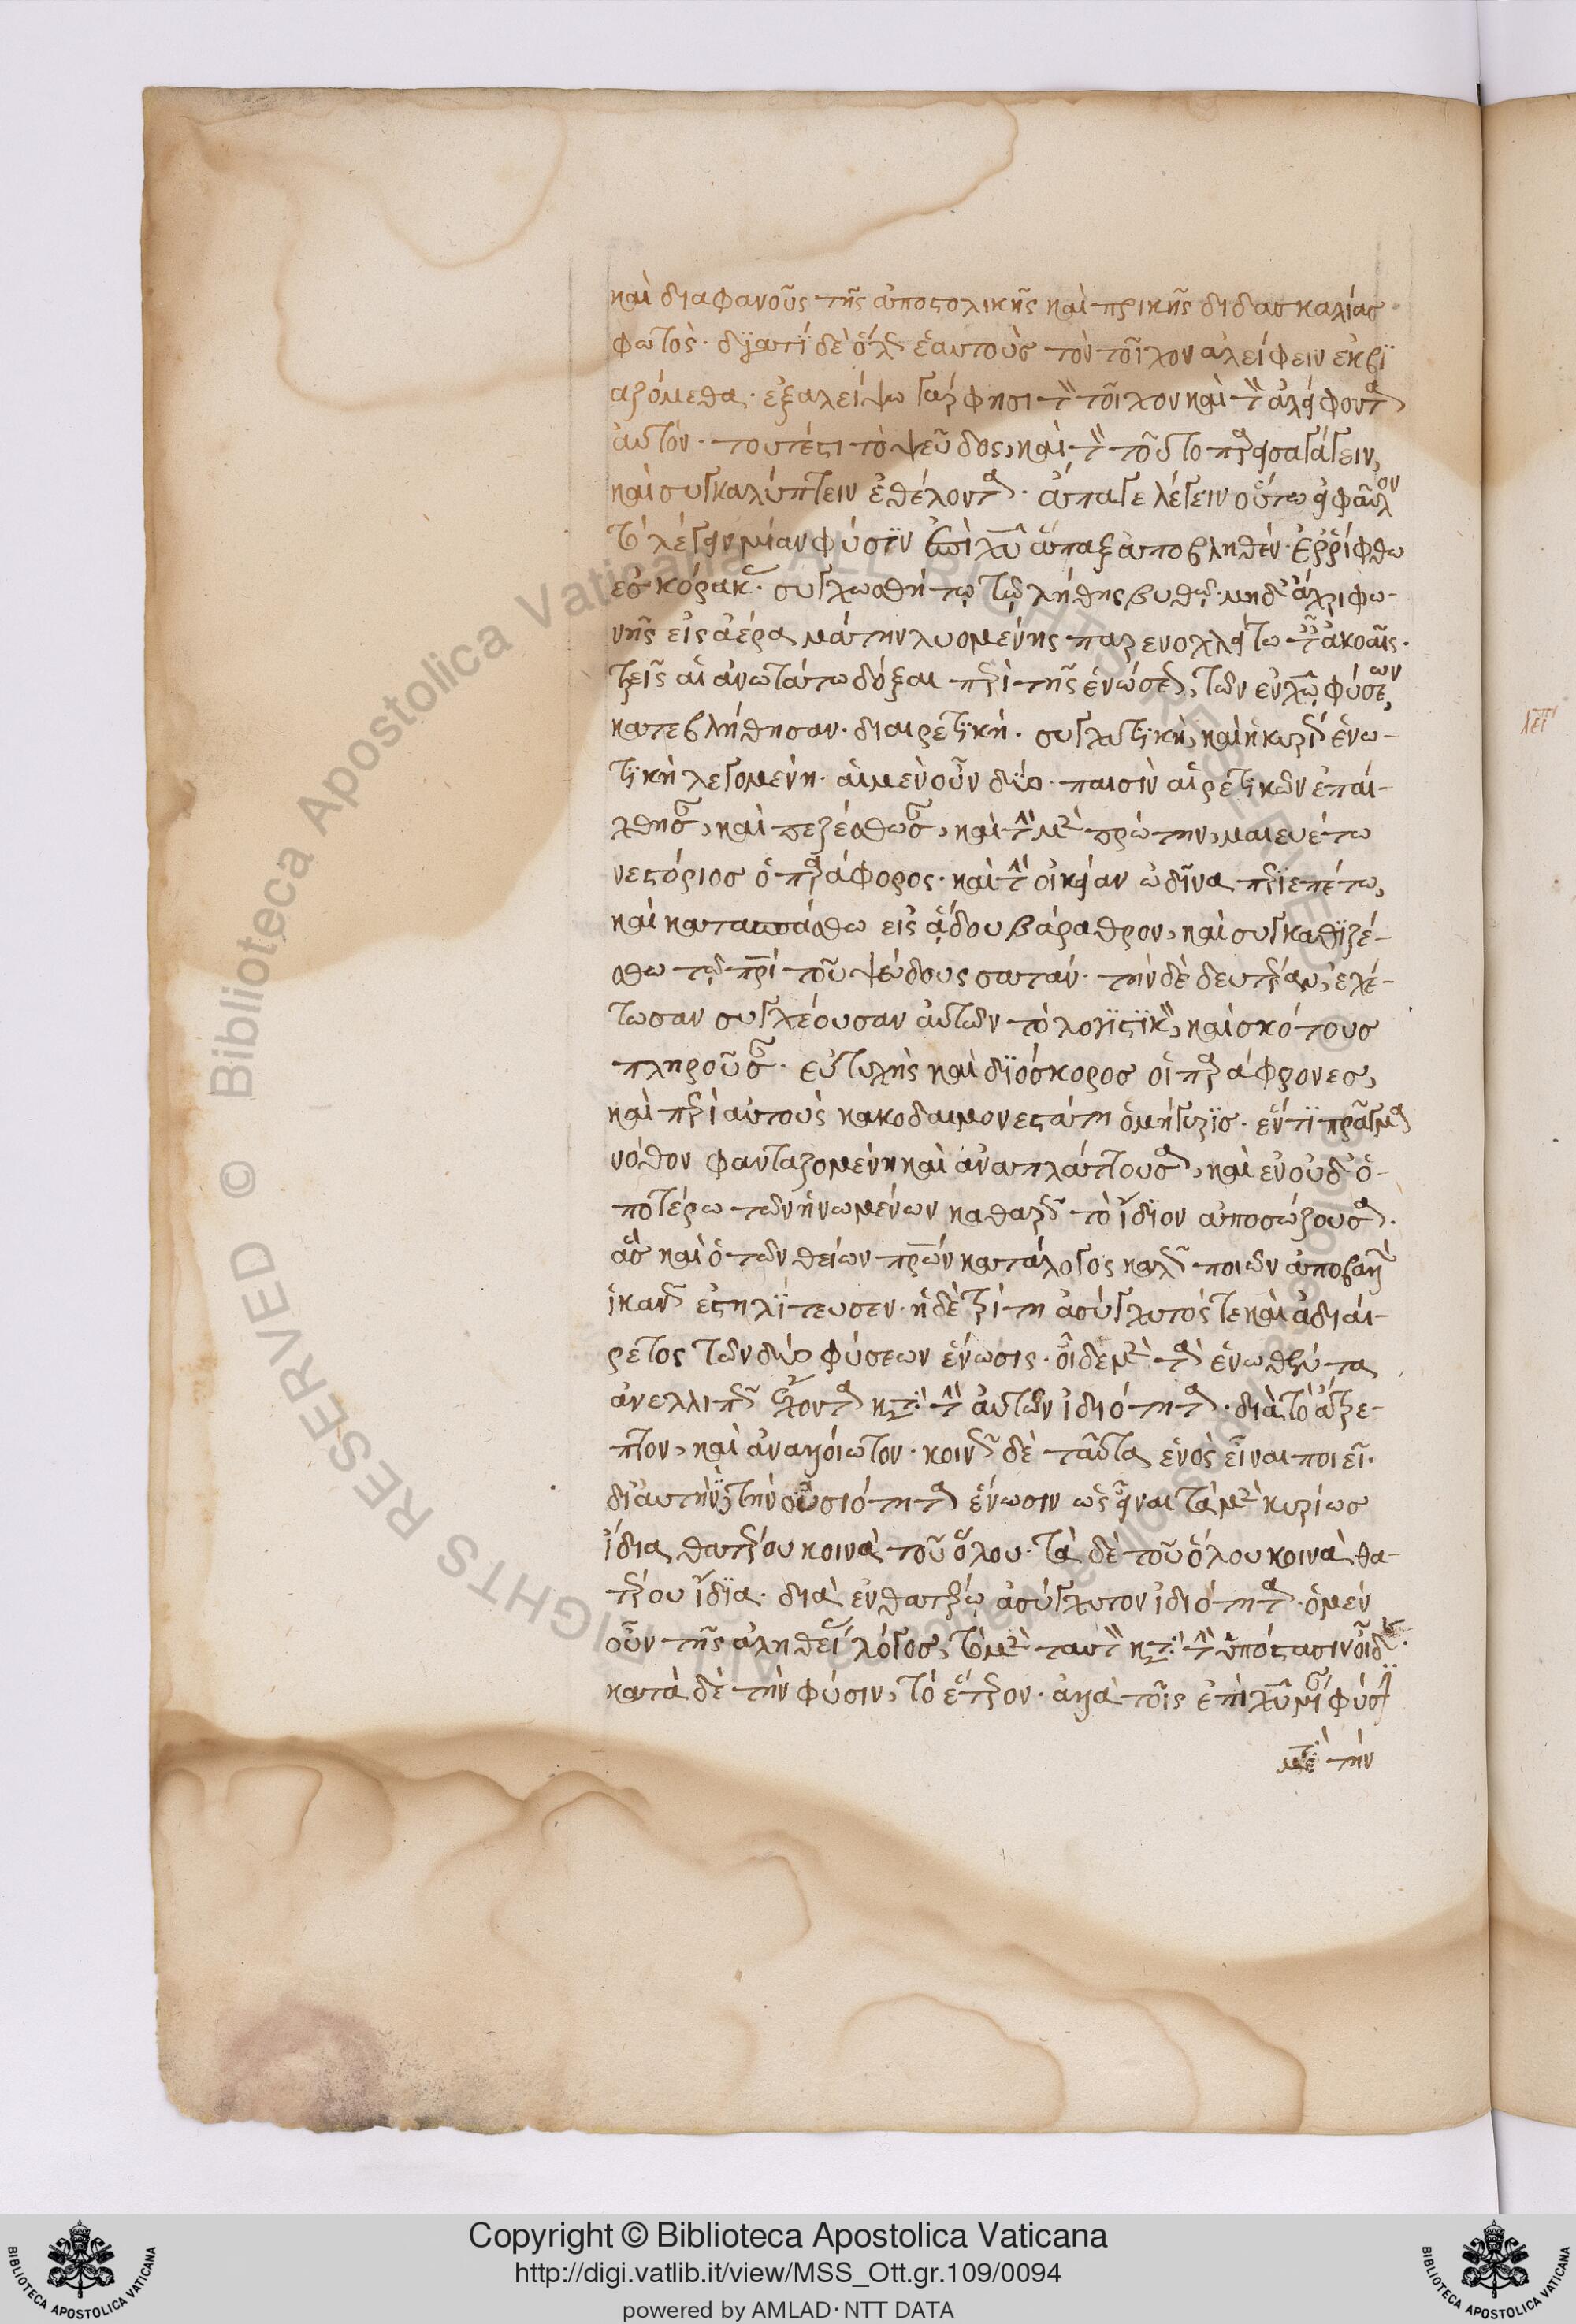 καὶ διαφανοῦς τῆς ἀποστολικῆς καὶ πρικῆς διδασκαλίας
φωτὸς· διατί δὲ ὅλως ἑαυτοὺς τὸν τοῖχον ἀλείφειν ἐκβι
αζόμεθα· ἐξαλείψω γάρ φησι τὸν τοῖχον καὶ τοὺς ἀλείφοντας
αὐτόν· τουτέστι τὸ ψεῦδος, καὶ τοὺς τοῦτο παρεισαγάγειν,
καὶ συγκαλύπτειν ἐθέλοντας· ἄπαγε λέγειν οὕτω φαῦλον
τὸ λέγειν μίαν φύσιν ἐπὶ χυ ἅπαξ ἀποβληθέν· ἐῤῥίφθω
ἐς κόρακας· συγχωσθήτω τῷ λήθης βυθῷ· μηδ' ἄχρι φω-
νῆς εἰς ἀέρα μάτην λυομένης παρενοχλείτω ταῖς ἀκοαῖς·
τρεῖς αἱ ἀνωτάτω δόξαι περὶ τῆς ἑνώσεως, τῶν ἐν χω φύσεων,
κατεβλήθησαν· διαιρετικὴ· συγχυτικὴ, καὶ ἡ κυρίως ἑνω-
τικὴ λεγομένη· αἱ μὲν οὖν δύο· παισὶν αἱρετικῶν
καὶ τὴν μὲν πρώτην, μαιευέτω
νεστόριος ὁ παράφορος· καὶ τὴν οἰκείαν ὠδῖνα περιεπέτω,
καὶ κατασπάσθω εἰς ᾅδου βάραθρον, καὶ συγκαθιζέ-
σθω τῷ πρὶ τοῦ ψεύδους σατάν· τὴν δὲ δευτέραν, ἐχέ-
τωσαν συγχέουσαν αὐτῶν τὸ λογιστικὸν, καὶ σκότους
πληροῦσαν· εὐτυχὴς καὶ διόσκορος οἱ παράφρονες,
καὶ περὶ αὐτοὺς κακοδαιμονεστάτη ὁμήγυρις· ἕν τι πρᾶγμα
νόθον φανταζομένη καὶ ἀναπλάττουσα, καὶ ἐν οὐδ' ὁ-
ποτέρω τῶν ἡνωμένων καθαρῶς τὸ ἴδιον ἀποσώζουσα·
ἃς καὶ ὁ τῶν θείων πρων κατάλογος καλῶς ποιῶν ἀποβαλὼν
ἱκανῶς ἐστηλίτευσεν· ἡ δὲ τρίτη ἀσύγχυτός τε καὶ ἀδιαί-
ρετος τῶν δύο φύσεων ἕνωσις· οἶδε μὲν τὰ ἑνωθέντα
ἀνελλιπῶς ἔχοντα κατὰ τὴν αὐτῶν ἰδιότητα· διὰ τὸ ἄτρε-
πτον, καὶ ἀναλλοίωτον· κοινῶς δὲ ταῦτα ἑνὸς εἶναι ποιεῖ·
διὰ τὴν ἕνωσιν ὡς εἶναι τὰ μὲν κυρίως
ἴδια θατέρου κοινὰ τοῦ ὅλου· τὰ δὲ τοῦ ὅλου κοινὰ θα-
τέρου ἴδια· διὰ ἐν θατέρῳ ἀσύγχυτον ἰδιότητα· ὁ μὲν
οὖν τῆς ἀληθείας λόγος, τὸ μὲν ταυτὸν κατὰ τὴν ὑπόστασιν οἶδεν·
κατὰ δὲ τὴν φύσιν, τὸ ἕτερον· ἀλλὰ τοῖς ἐπὶ χυ μίαν φύσιν
μετὰ τὴν
Copyright © Biblioteca Apostolica Vaticana
http://digi.vatlib.it/view/MSS_Ott.gr.109/0094
powered by AMLAD·NTT DATA
BIBLIOTECA APOSTOLICA VATICANA
BIBLIOTECA APOSTOLICA VATICANA